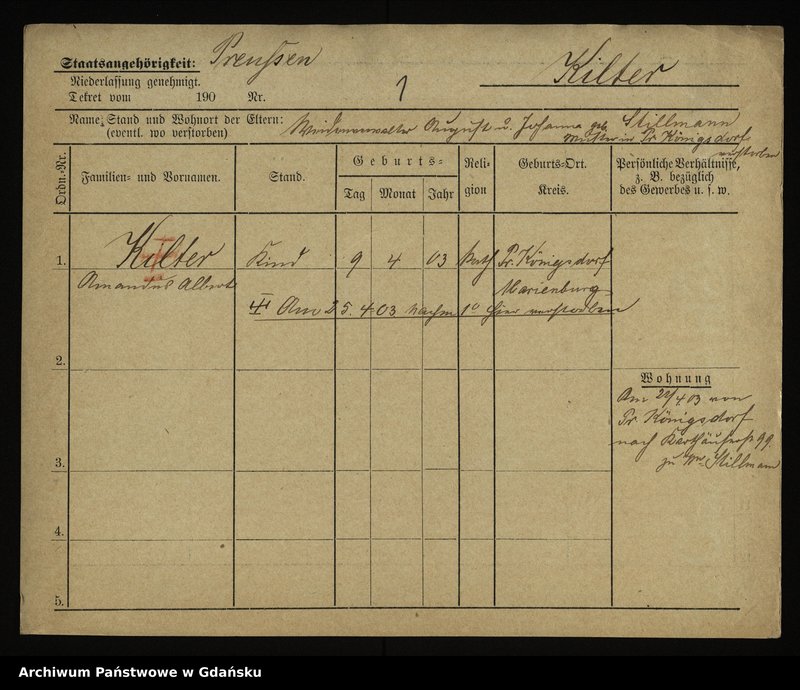 Staatsangehörigkeit: Preussen
Niederlassung genehmigt.
Kilter
Dekret vom 190 Nr. 1
Name, Stand und Wohnort der Eltern: August u. Johanna geb. Stillmann
(eventl. wo verstorben) Mutter in Pr Königsdorf
verstorben
Ordn.-Nr.
Familien- und Vornamen.
Stand.
Geburts-
Tag Monat Jahr
Reli-
gion
Geburts-Ort.
Kreis.
Persönliche Verhältnisse,
z. B. bezüglich
des Gewerbes u. s. w.
1. Kilter Kind 9 4 03 kath Pr. Königsdorf
Amandus Albert Marienburg
Am 25. 4. 03 nachm 1° hier verstorben
2.
Wohnung
Am 22/4 03 von
Pr Königsdorf
nach Karthäuserstr 99
3.
zu Stillmann
4.
5.
Archiwum Państwowe w Gdańsku